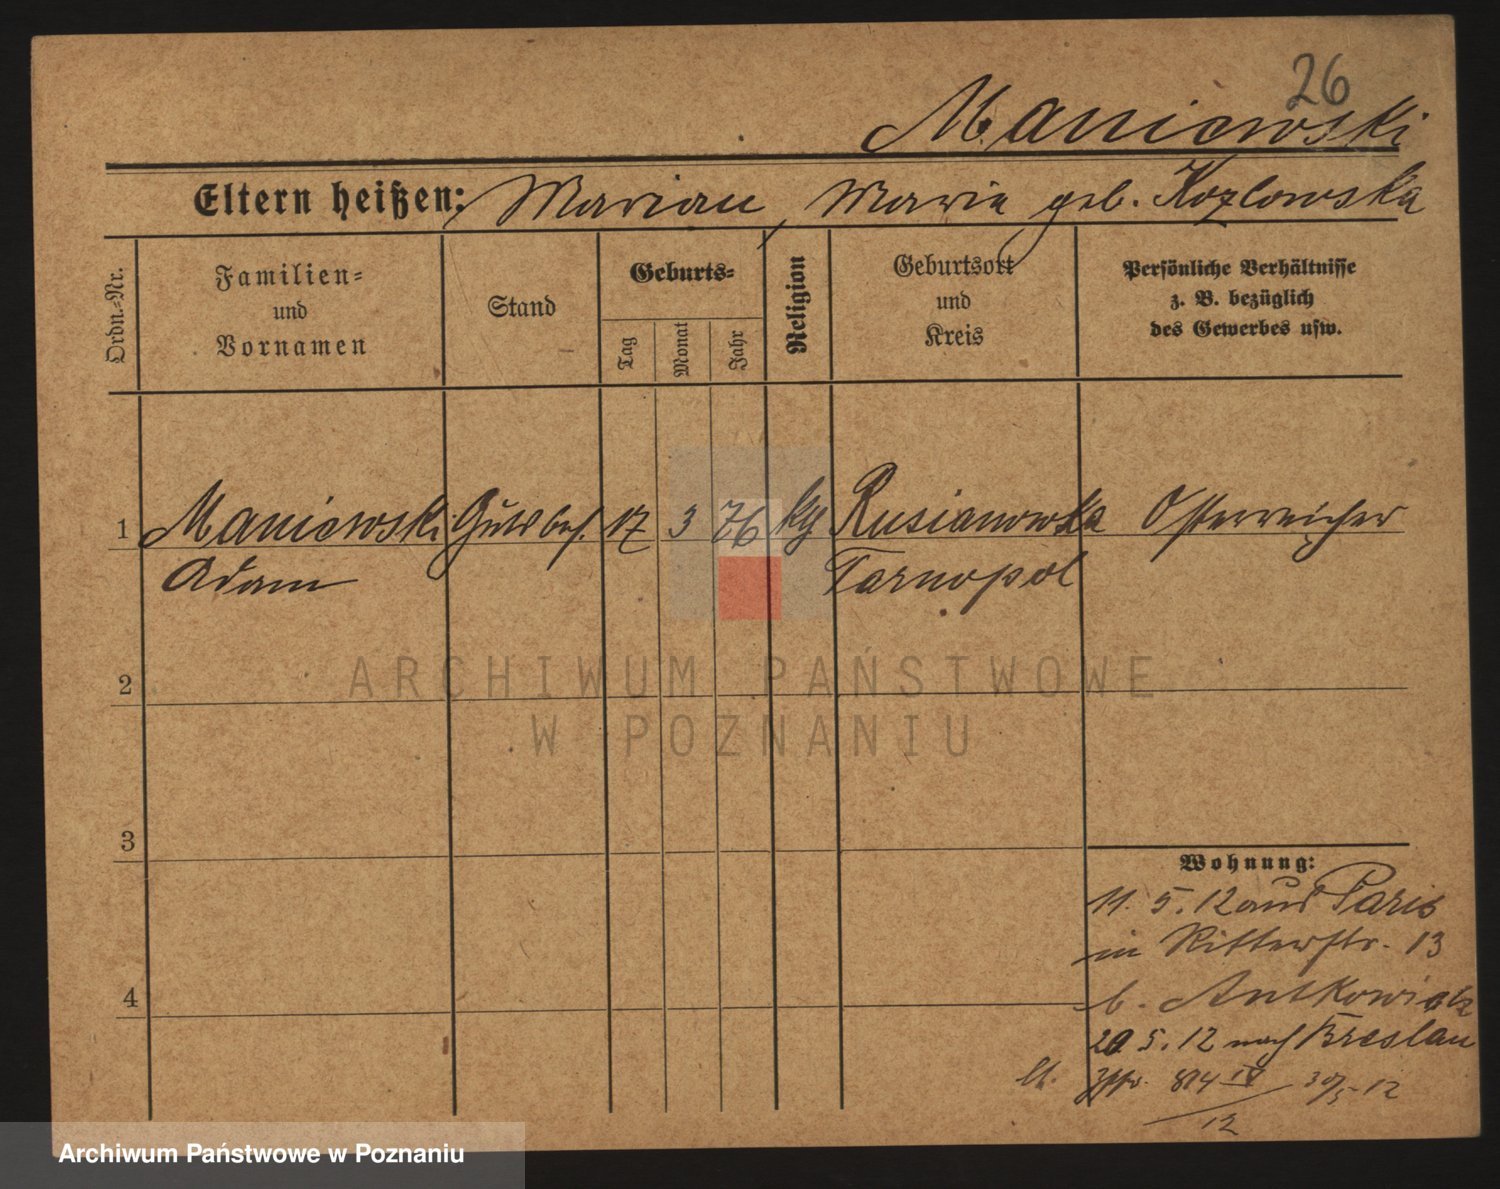 26
Maniewski
Eltern heißen: Marian, Maria geb. Kozlowska
Ordn.-Nr.
Familien-
und
Vornamen
Stand
Geburts-
Tag
Monat
Jahr
Religion
Geburtsort
und
Kreis
Persönliche Verhältnisse
z. B. bezüglich
des Gewerbes usw.
1 Maniewski Gutsbes. 17 3 76 Rusianowka Österreicher
Adam Tarnopol
2
3
4
Wohnung:
11. 5. 12 aus Paris
in Ritterstr. 13
b. Antkowiak
20. 5. 12 nach Breslau
814 IV 30/5 12
12
ARCHIWUM PAŃSTWOWE
W POZNANIU
Archiwum Państwowe w Poznaniu